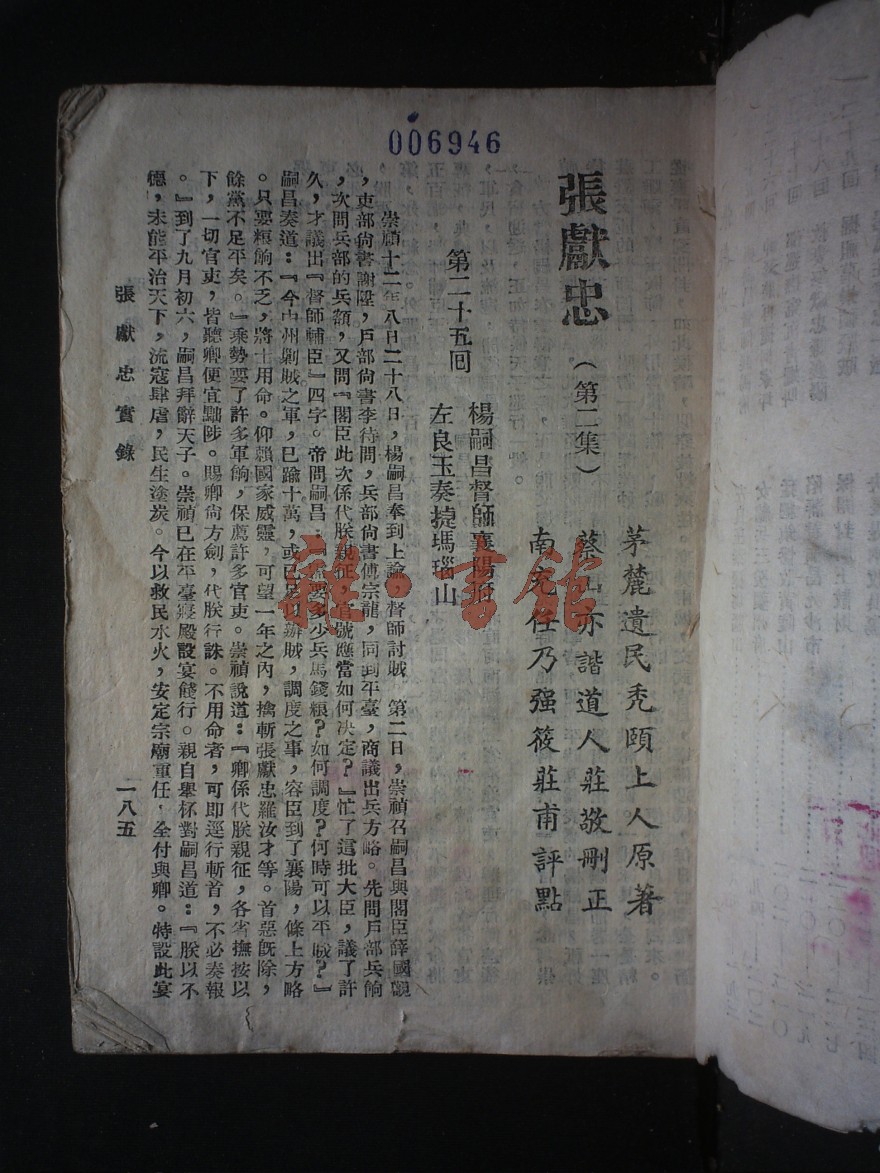 006946
張獻忠（第二集）
茅麓遺民禿頤上人原著
蔡山亦諧道人莊敬刪正
南充任乃强筱莊甫評點
第二十五回
楊嗣昌督師襄陽
左良玉奏捷瑪瑙山
崇禎十二年八日二十八日，楊嗣昌奉到上諭，督師討賊　第二日，崇禎召嗣昌與閣臣薛國觀
，吏部尙書謝陞，戶部尙書李待問，兵部尙書傅宗龍，同到平臺，商議出兵方略。先問戶部兵餉
，次問兵部的兵額，又問『閣臣此次係代朕親征，官號應當如何決定？』忙了這批大臣，議了許
久，才議出『督師輔臣』四字。帝問嗣昌：『需要多少兵馬錢糧？如何調度？何時可以平賊？』
嗣昌奏道：『今中州剿賊之軍，已踰十萬，或已足以辦賊，調度之事，容臣到了襄陽，條上方略
。只要糧餉不乏，將士用命。仰賴國家威靈，可望一年之內，擒斬張獻忠羅汝才等。首惡旣除，
餘黨不足平矣。』乘勢要了許多軍餉，保薦許多官吏。崇禎說道：『卿係代朕親征，各省撫按以
下，一切官吏，皆聽卿便宜黜陟。賜卿尙方劍，代朕行誅。不用命者，可即逕行斬首，不必奏報
。』到了九月初六，嗣昌拜辭天子。崇禎已在平臺寢殿設宴餞行。親自舉杯對嗣昌道：『朕以不
德，未能平治天下，流寇肆虐，民生塗炭。今以救民水火，安定宗廟重任，全付與卿。特設此宴
張獻忠實錄
一八五
雜·書館